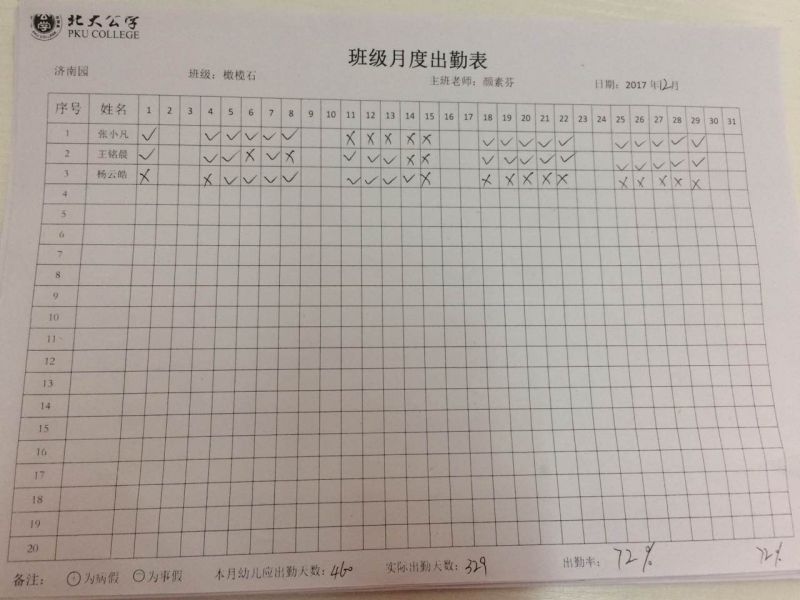 北大公学
PKU COLLEGE
班级月度出勤表
济南园 班级：橄榄石 主班老师：颜素芬 日期：2017年12月
序号 姓名 1 2 3 4 5 6 7 8 9 10 11 12 13 14 15 16 17 18 19 20 21 22 23 24 25 26 27 28 29 30 31
1 张小凡 ✓ ✓ ✓ ✓ ✓ ✓ ✗ ✗ ✗ ✗ ✗ ✓ ✓ ✓ ✓ ✓ ✓ ✓ ✓ ✓ ✓
2 王铭晨 ✓ ✓ ✓ ✗ ✓ ✗ ✓ ✓ ✓ ✗ ✗ ✓ ✓ ✓ ✓ ✓ ✓ ✓ ✓ ✓ ✓
3 杨云皓 ✗ ✗ ✓ ✓ ✓ ✓ ✓ ✓ ✓ ✓ ✗ ✗ ✗ ✗ ✗ ✗ ✗ ✗ ✗ ✗ ✗
4
5
6
7
8
9
10
11
12
13
14
15
16
17
18
19
20
备注： ⊕为病假 ⊖为事假 本月幼儿应出勤天数：460 实际出勤天数：329 出勤率：72% 72%